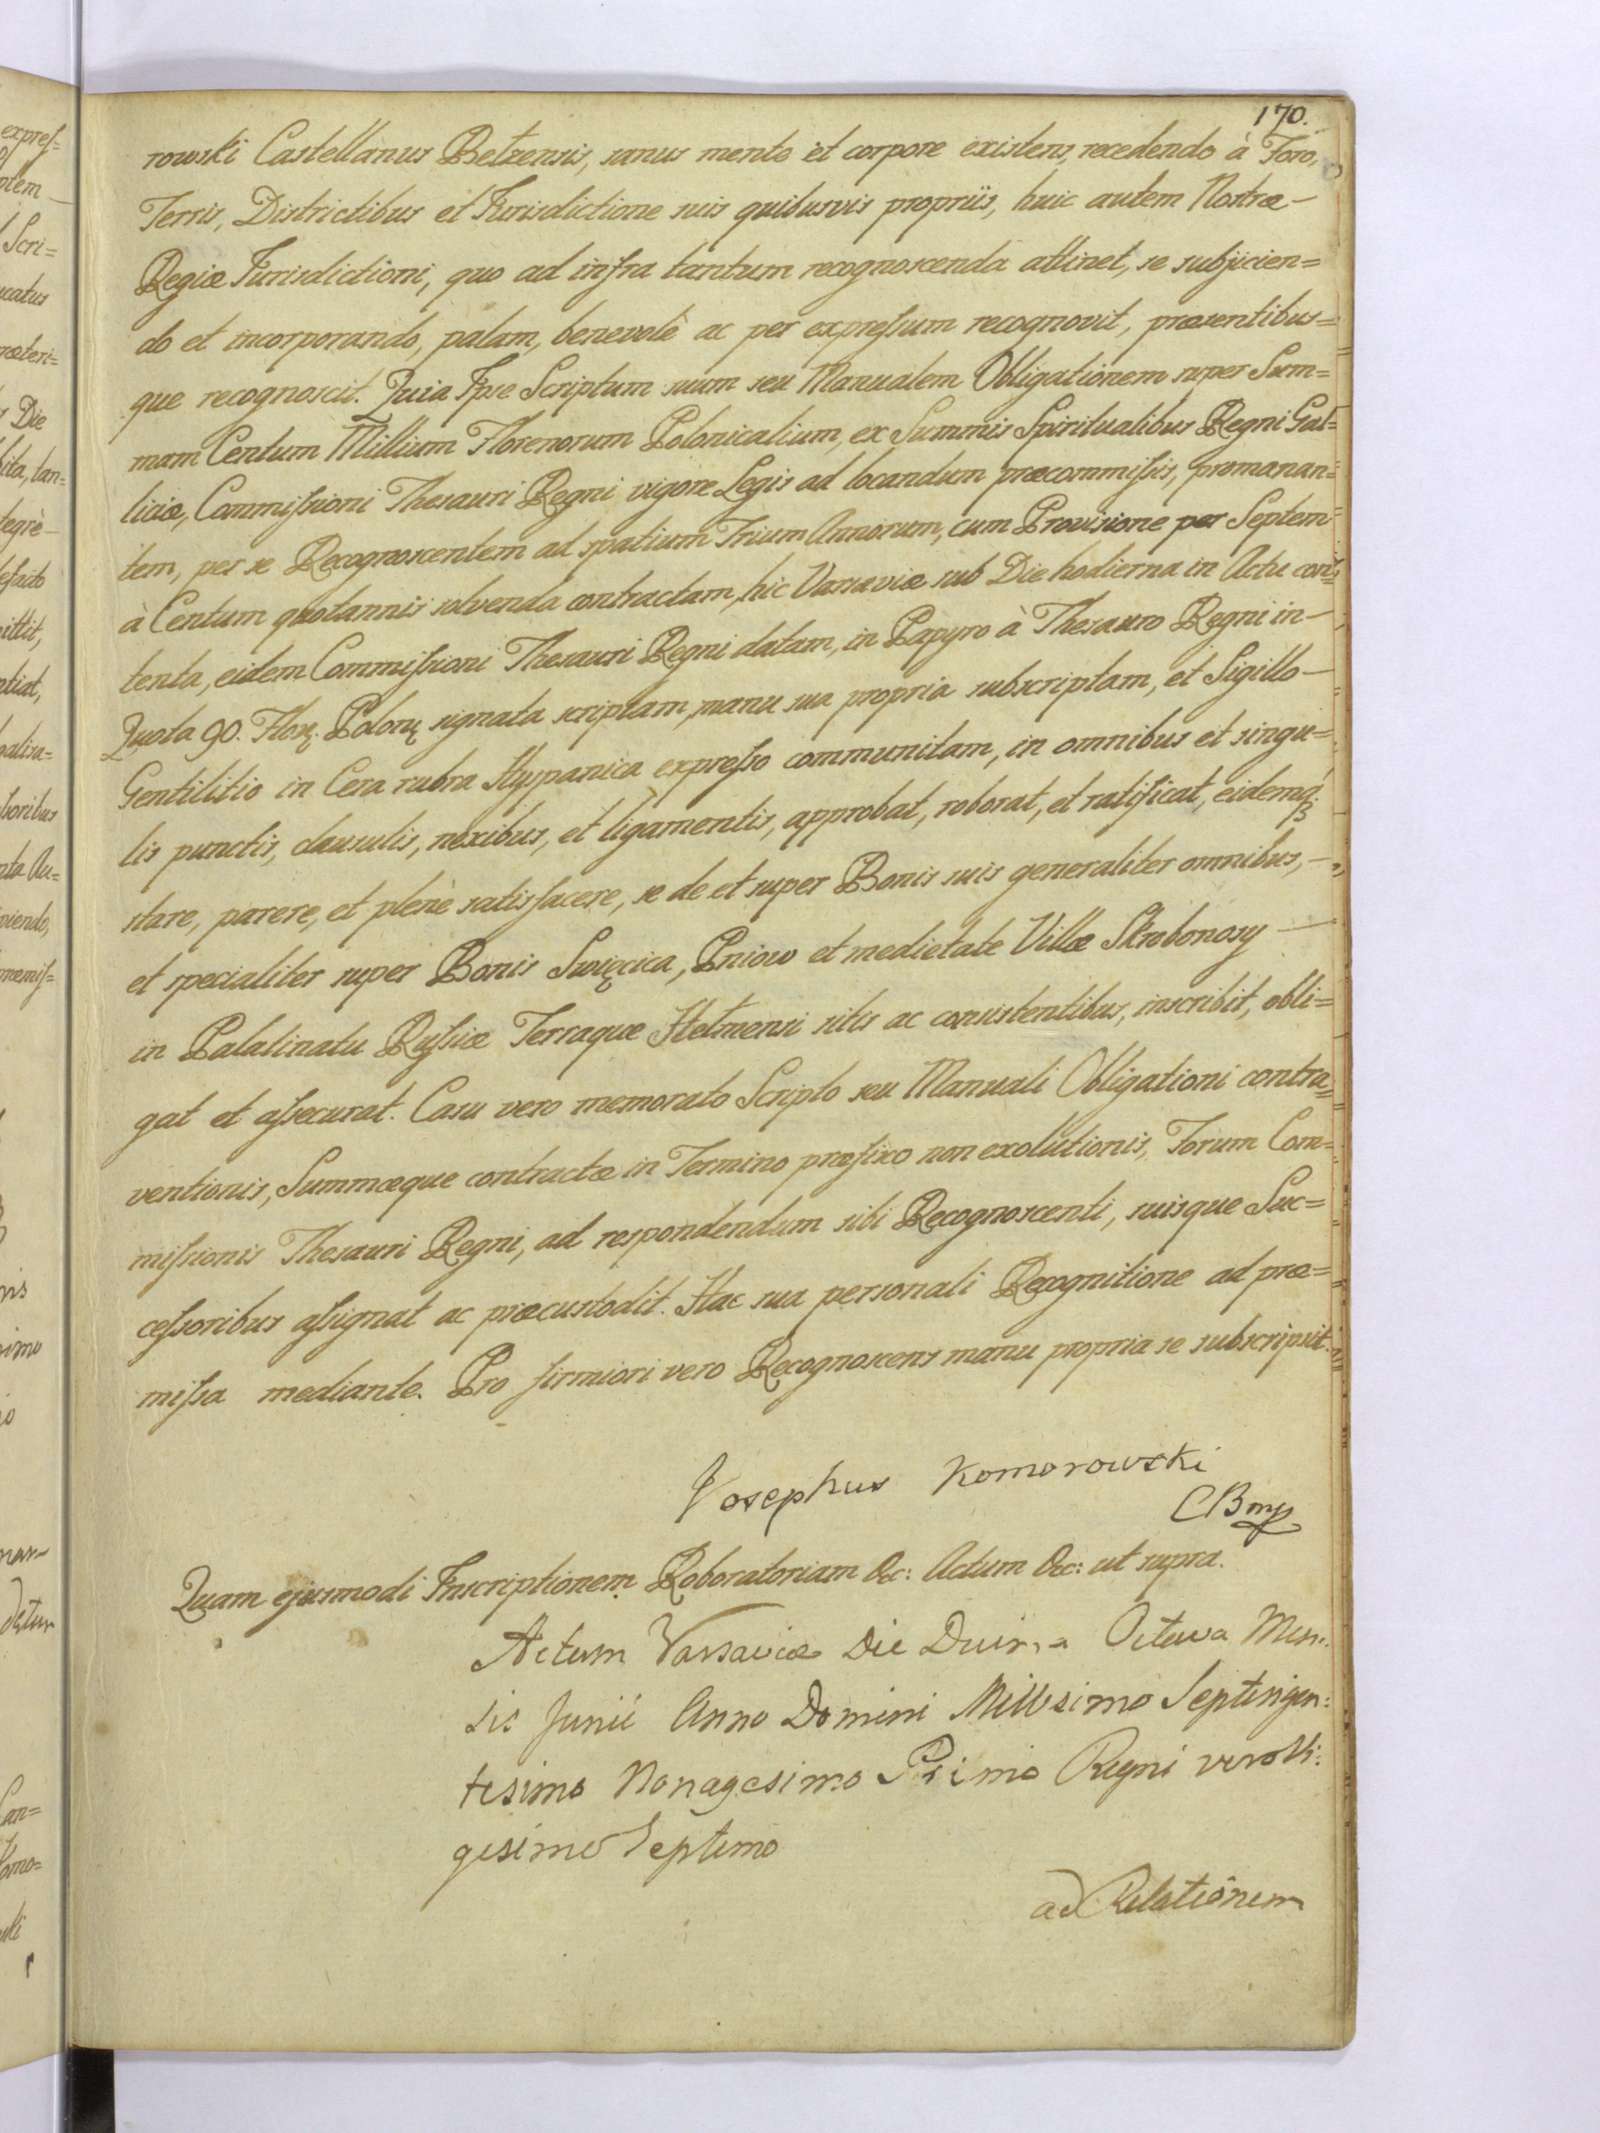 170.
rowski Castellanus Betzensis, sanus mente et corpore existens, recedendo à Foro,
Terris, Districtibus et Jurisdictione suis quibusvis propriis, huic autem Nostræ
Regiæ Jurisdictioni, quo ad infra tantum recognoscenda attinet, se subjicien=
do et incorporando, palam, benevolè ac per expressum recognovit, præsentibus=
que recognoscit. Quia Ipse Scriptum suum seu Manualem Obligationem super Sum=
mam Centum Millium Florenorum Polonicalium, ex Summis Spiritualibus Regni Gal=
liciæ, Commissioni Thesauri Regni vigore Legis ad locandum præcommissis, promanan=
tem, per se Recognoscentem ad spatium Trium Annorum, cum Provisione per Septem
à Centum quotannis solvenda contractam, hic Varsaviæ sub Die hodierna in Actu con=
tenta, eidem Commissioni Thesauri Regni datam, in Papyro à Thesauro Regni in
Quota 90. Flor. Polon. signata scriptam, manu sua propria subscriptam, et Sigillo
Gentilitio in Cera rubra Hyspanica expresso communitam, in omnibus et singu=
lis punctis, clausulis, nexibus, et ligamentis, approbat, roborat, et ratificat, eidemq;
stare, parere, et plenè satisfacere, se de et super Bonis suis generaliter omnibus,
et specialiter super Bonis Swięcica, Pniow et medietate Villæ Skrobonosy
in Palatinatu Russiæ Terraque Helmensi sitis ac consistentibus, inscribit, obli=
gat et assecurat. Casu vero memorato Scripto seu Manuali Obligationi contra=
ventionis, Summæque contractæ in Termino præfixo non exolutionis, Forum Com=
missionis Thesauri Regni, ad respondendum sibi Recognoscenti, suisque Suc=
cessoribus assignat ac præcustodit. Hac sua personali Recognitione ad præ=
missa mediante. Pro firmiori vero Recognoscens manu propria se subscripsit.
Josephus Komorowski
CB mp
Quam ejusmodi Inscriptionem Roboratoriam &c: Actum &c: ut supra.
Actum Varsaviæ Die Decima Octava Men:
sis Junii Anno Domini Millesimo Septingen:
tesimo Nonagesimo Primo Regni vero Vi:
gesimo Septimo
ad Relationem